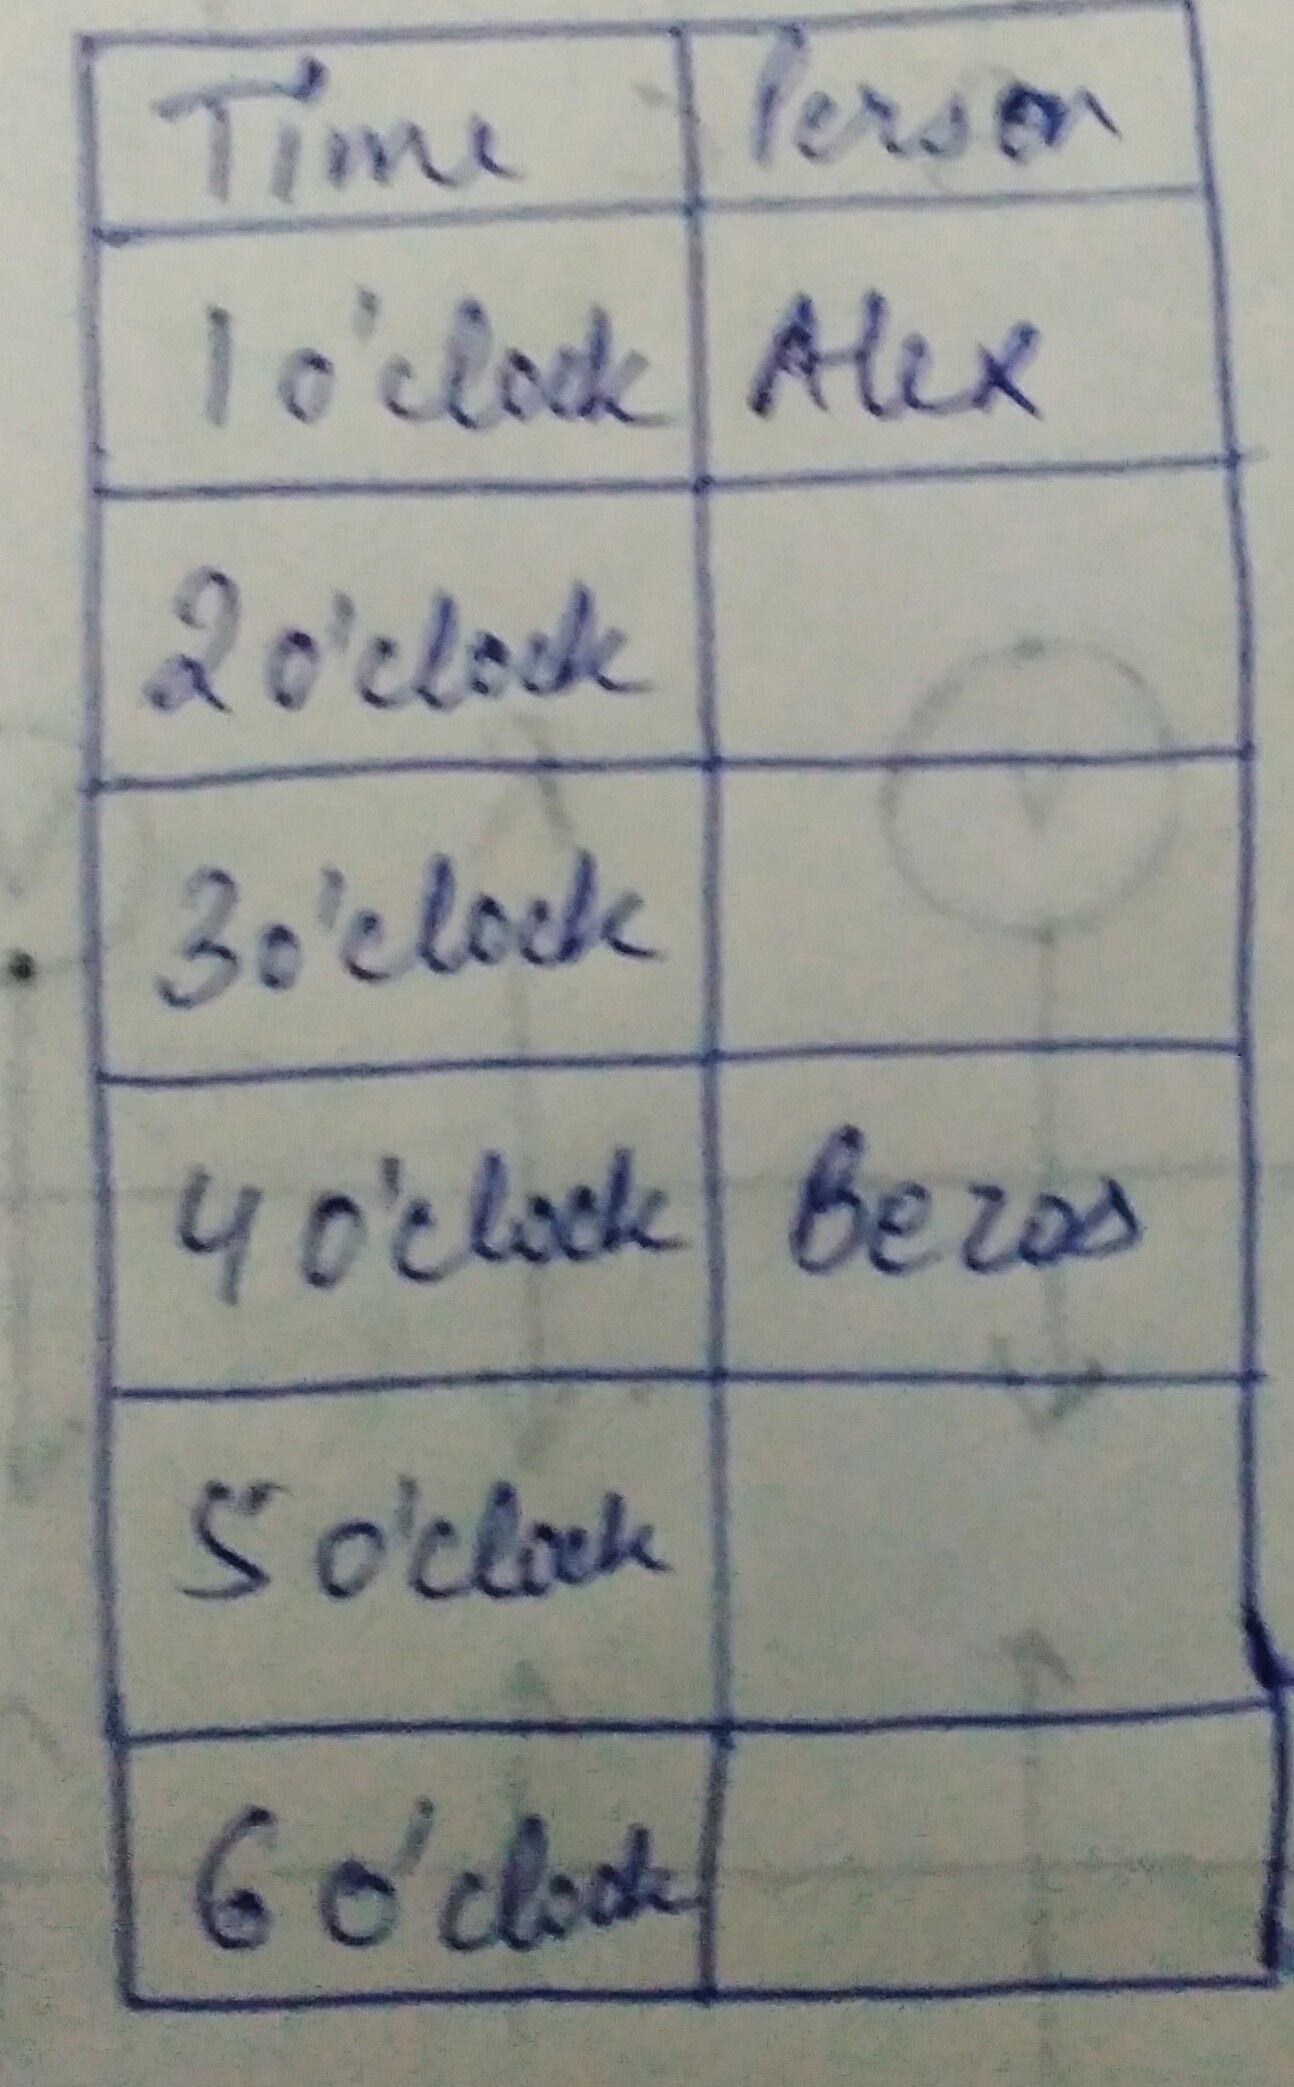 Time Person
1 o'clock Alex
2 o'clock
3 o'clock
4 o'clock Bezos
5 o'clock
6 o'clock